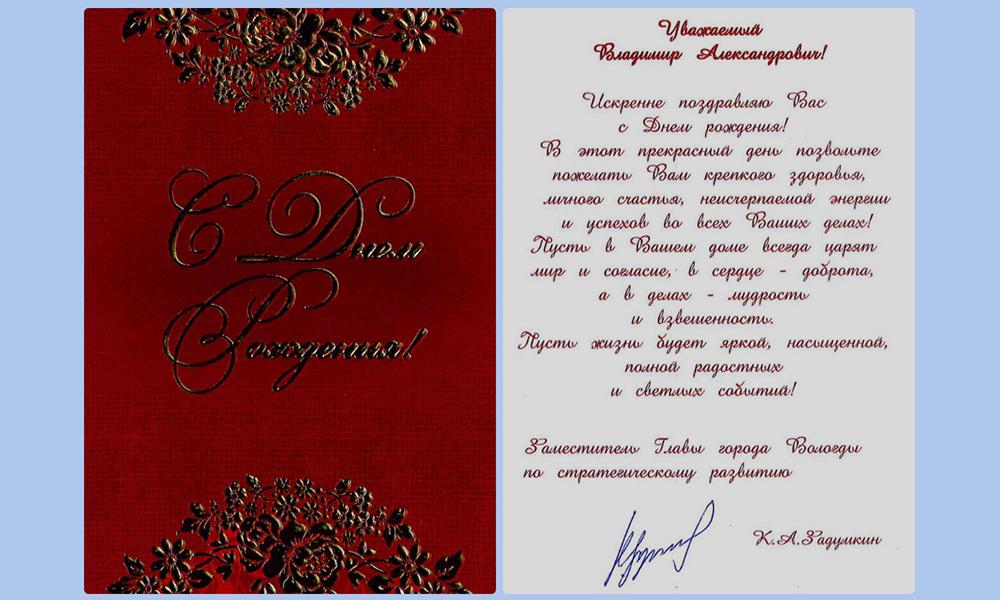 С Днем
Рождения!
Уважаемый
Владимир Александрович!
Искренне поздравляю Вас
с Днем рождения!
В этот прекрасный день позвольте
пожелать Вам крепкого здоровья,
личного счастья, неисчерпаемой энергии
и успехов во всех Ваших делах!
Пусть в Вашем доме всегда царят
мир и согласие, в сердце - доброта,
а в делах - мудрость
и взвешенность.
Пусть жизнь будет яркой, насыщенной,
полной радостных
и светлых событий!
Заместитель Главы города Вологды
по стратегическому развитию
К.А.Задумкин